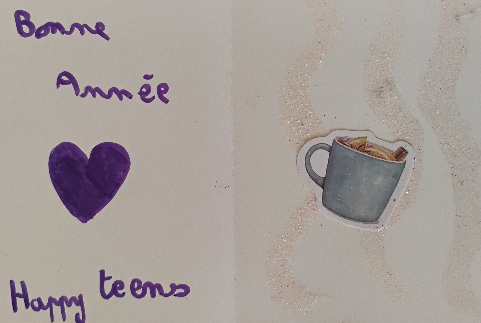 Bonne
Année
Happy teens